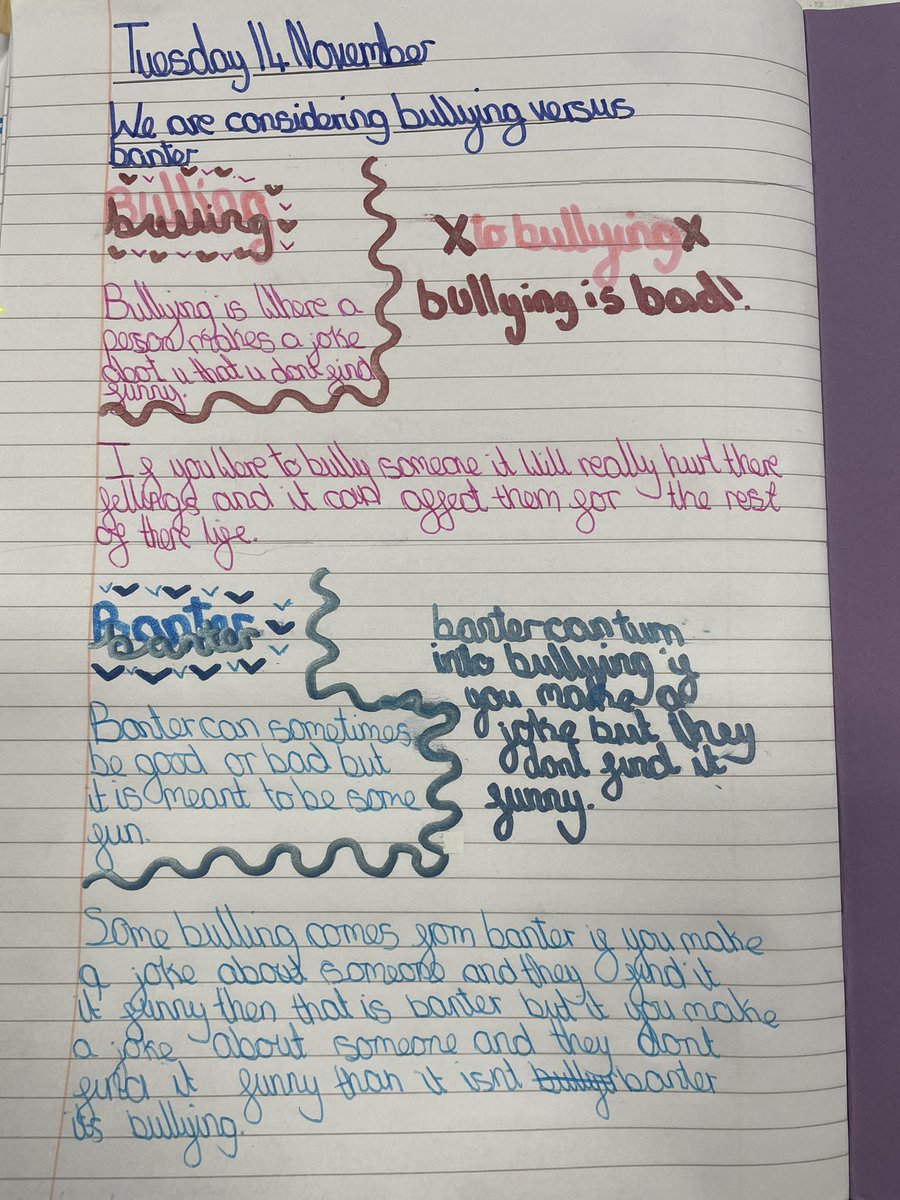 Tuesday 14 November
We are considering bullying versus
banter
Bulling
bulling
X to bullying X
bullying is bad!
Bullying is Where a
person makes a joke
abot u that u dont find
funny.
If you Were to bully someone it Will really hurt there
fellings and it can affect them for the rest
of there life.
Banter
banter
banter can turn
into bullying if
you make a
joke but they
dont find it
funny.
Banter can sometimes
be good or bad but
it is meant to be some
fun.
Some bulling comes fom banter if you make
a joke about someone and they find it
it funny then that is banter but if you make
a joke about someone and they dont
find it funny than it isnt banter
its bullying.